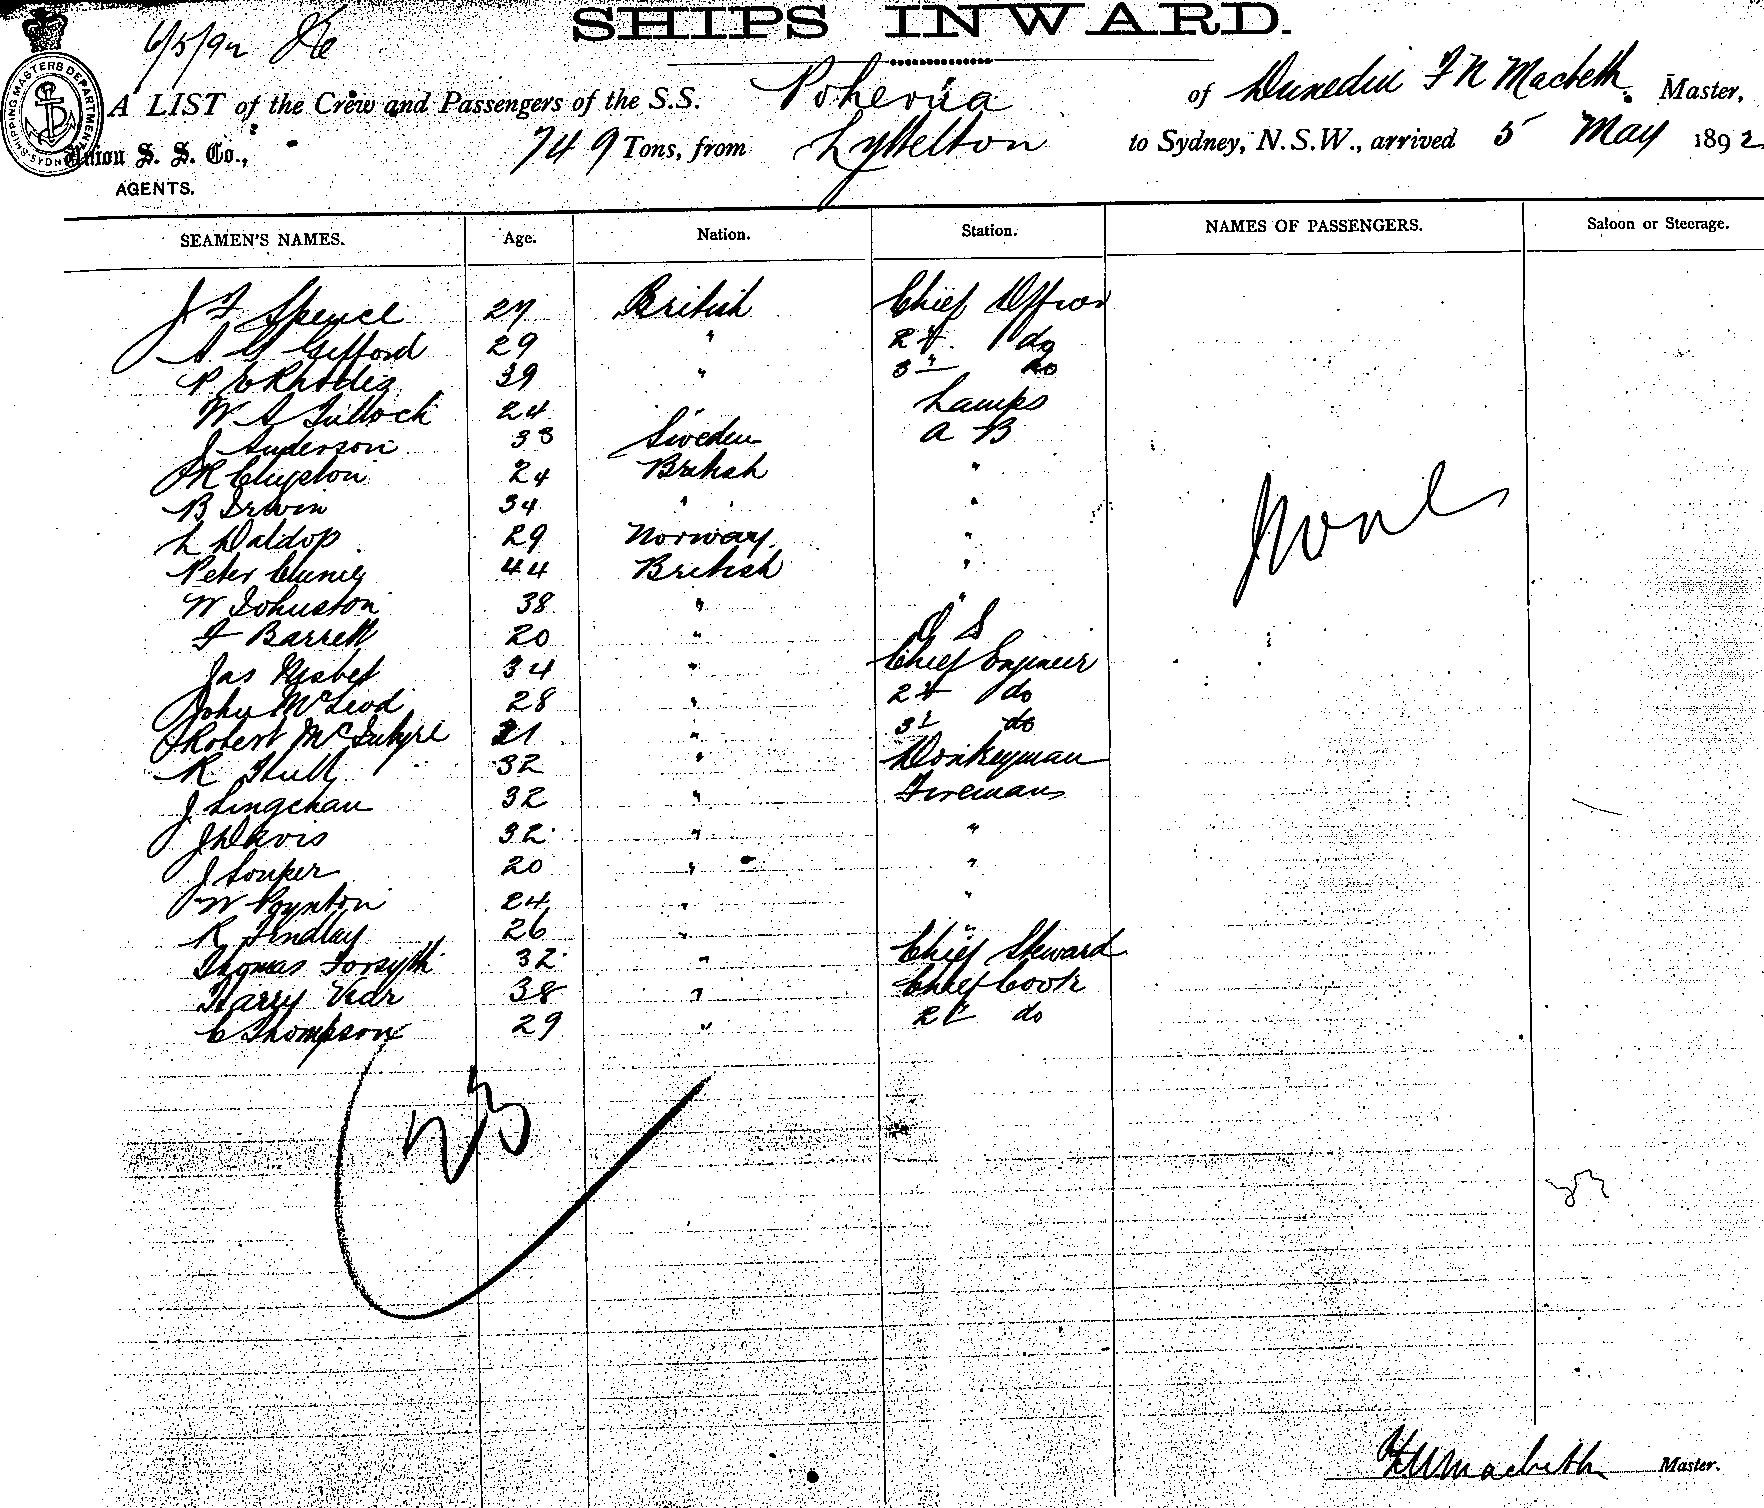 SHIPS INWARD.
6/5/92
SHIPPING MASTERS DEPARTMENT SYDNEY
A LIST of the Crew and Passengers of the S.S. Poherua of Dunedin F N Macbeth Master,
Union S. S. Co., 749 Tons, from Lyttelton to Sydney, N.S.W., arrived 5 May 1892
AGENTS.
SEAMEN'S NAMES. Age. Nation. Station. NAMES OF PASSENGERS. Saloon or Steerage.
J F Spence 27 British Chief Officer
A G Gifford 29 " 2d do
P C Rhodes 39 " 3d do
W S Tulloch 24 " Lamps
J Anderson 33 Sweden A B
R Clyston 24 British "
B Irwin 34 " "
L Daldop 29 Norway "
Peter Clunies 44 British "
None
W Johnston 38 " "
F Barrett 20 " O S
Jas Nisbet 34 " Chief Engineer
John McLeod 28 " 2d do
Robert McIntyre 21 " 3d do
R Hull 32 " Donkeyman
J Lingehan 32 " Fireman
J Davis 32 " "
J Souper 20 " "
W Poynton 24 " "
R Findlay 26 " "
Thomas Forsyth 32 " Chief Steward
Harry Vear 38 " Chief Cook
C Thompson 29 " 2d do
23
23
F N Macbeth Master.